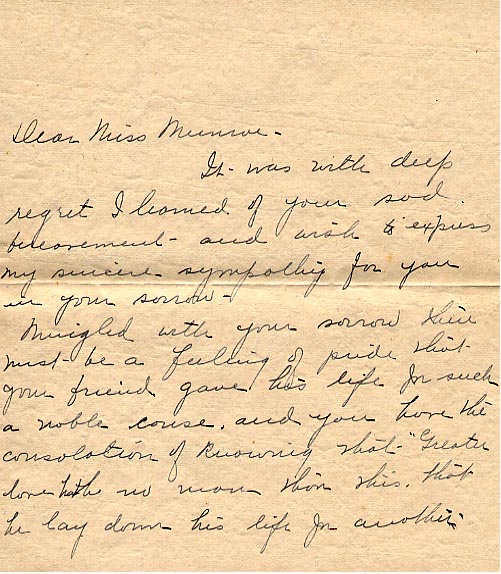 Dear Miss Munroe-
It was with deep
regret I learned of your sad
bereavement- and wish to express
my sincere sympathy for you
in your sorrow-
Mingled with your sorrow there
must be a feeling of pride that
your friend gave his life for such
a noble cause. and you have the
consolation of knowing that "Greater
love hath no man than this. that
he lay down his life for another"